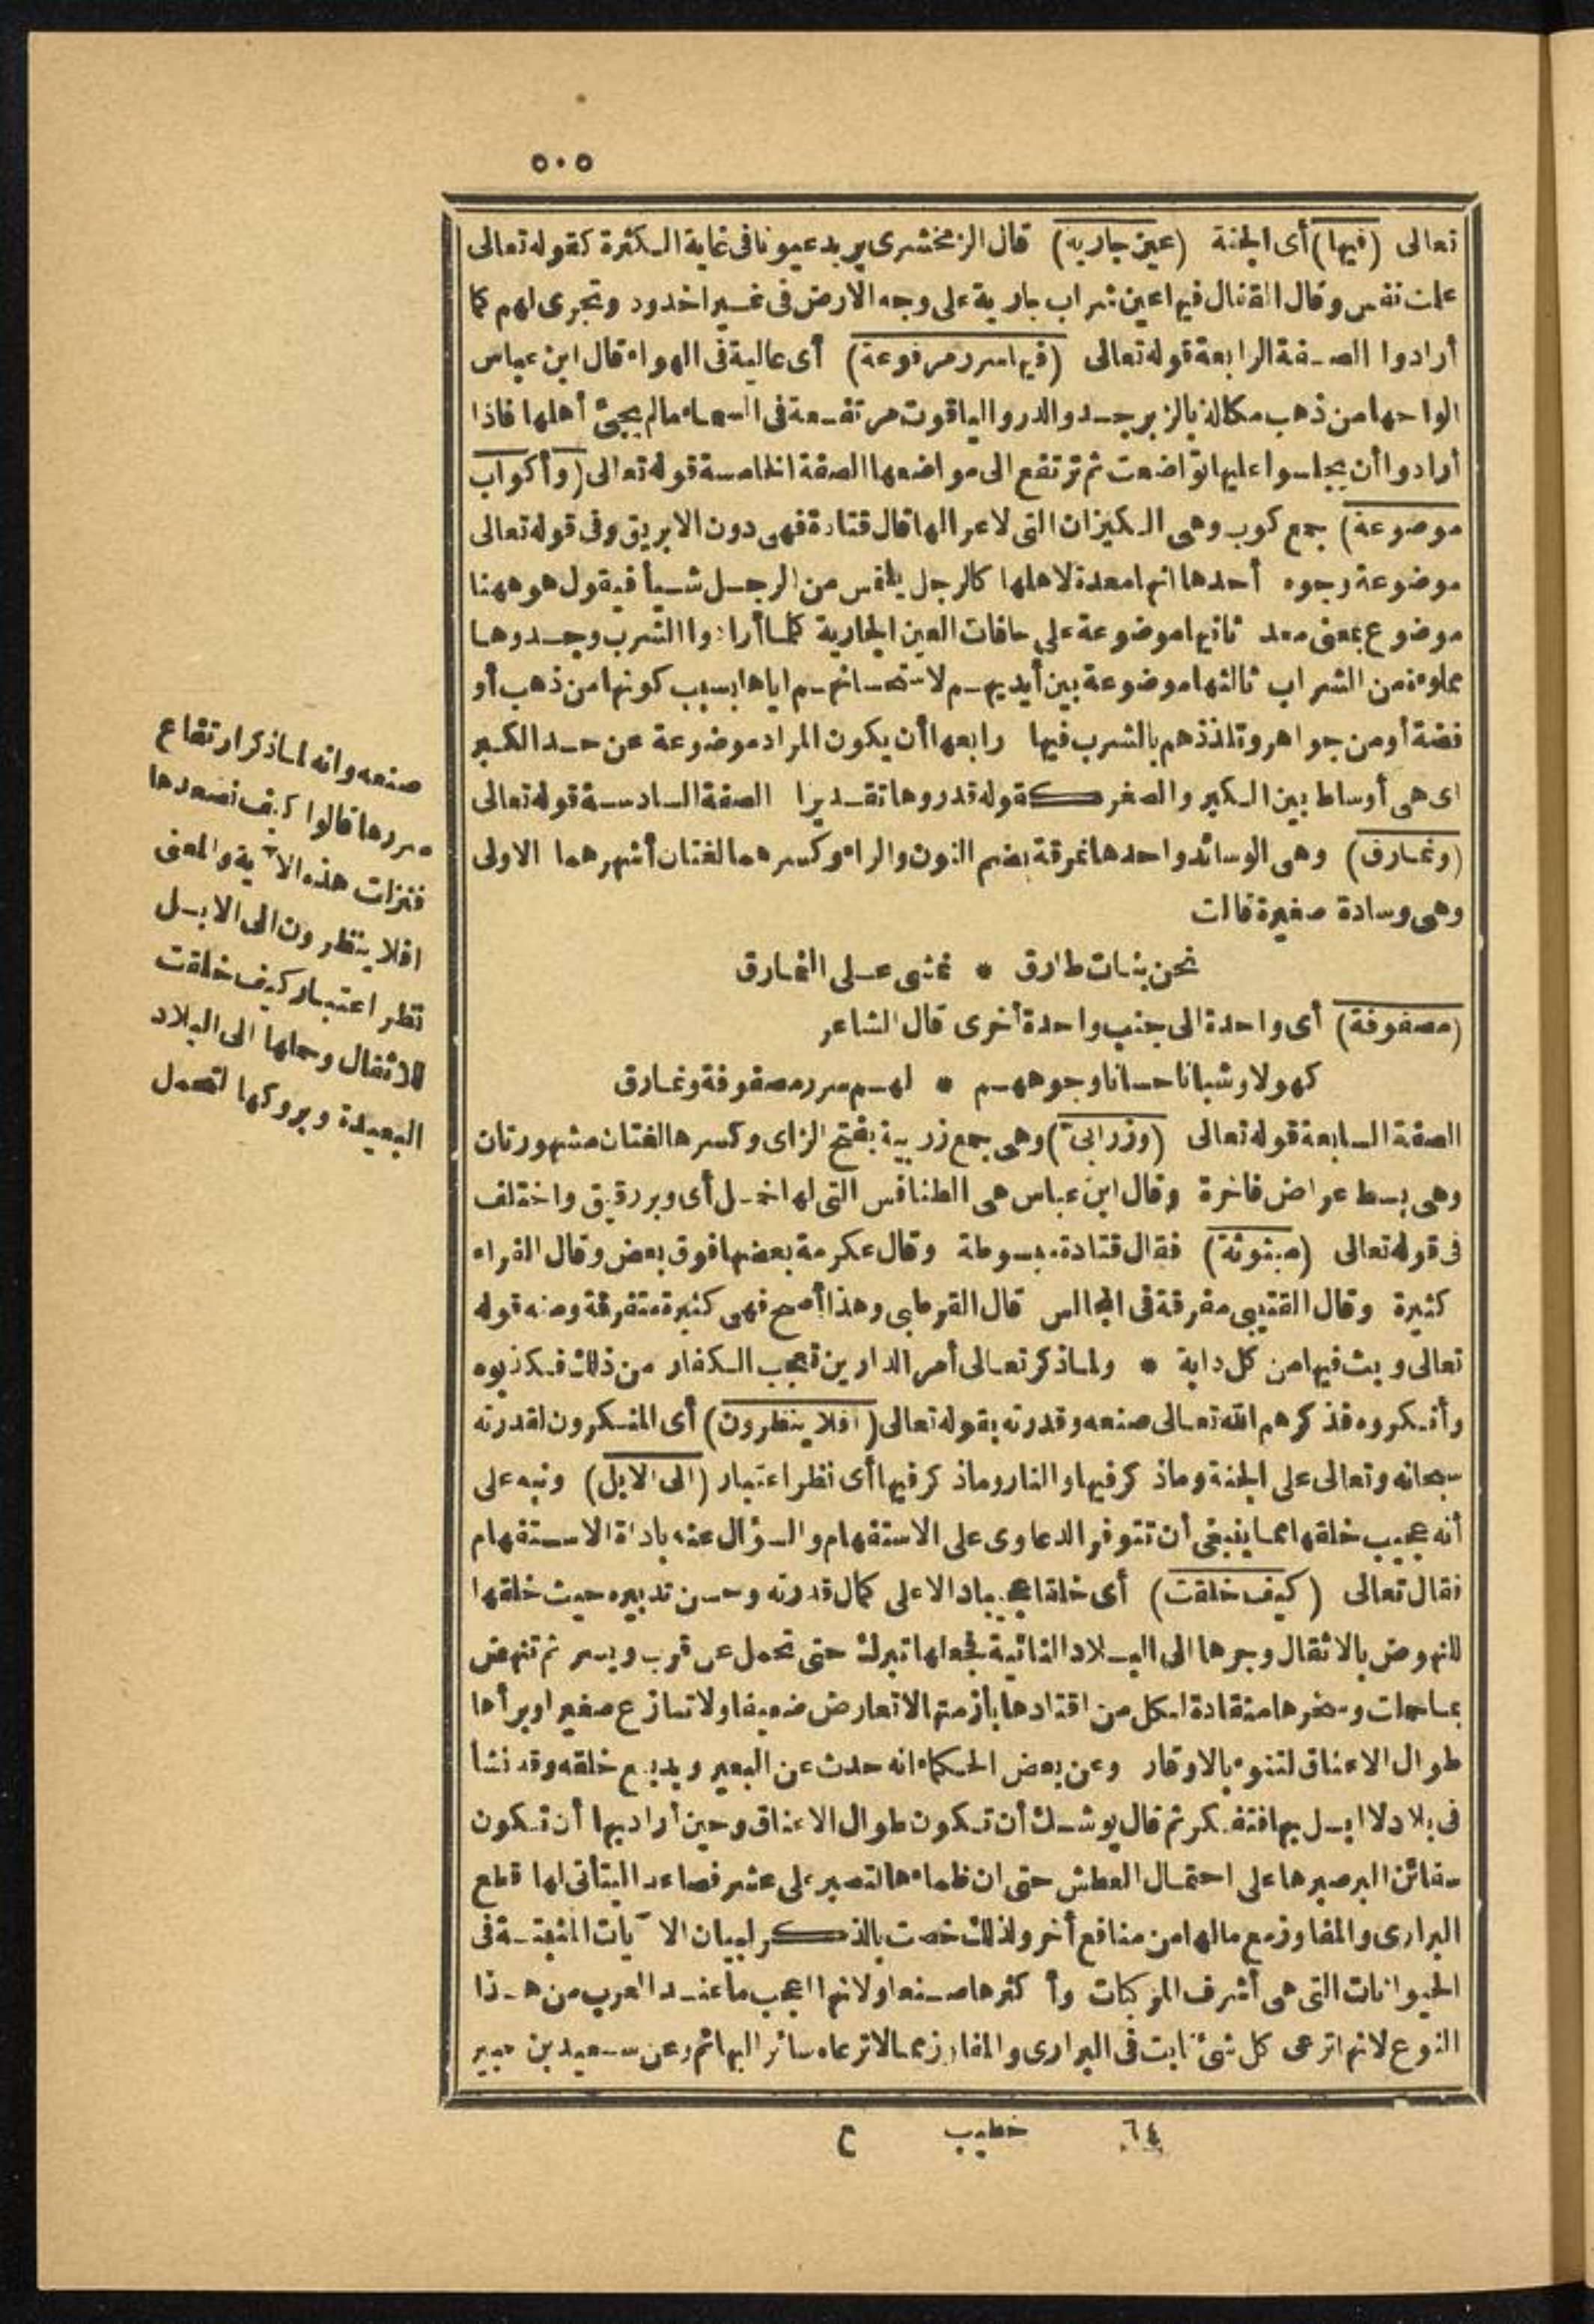 ٥٠٥
تعالى (فيها) أى الجنة (عين جارية) قال الزمخشرى يريد عيونا فى غاية الكثرة كقوله تعالى
علمت نفس وقال القفال فيها عين شراب جارية على وجه الارض فى غير اخدود وتجرى لهم كما
أرادوا الصفة الرابعة قوله تعالى (فيها سرر مرفوعة) أى عالية فى الهواء قال ابن عباس
ألواحها من ذهب مكللة بالزبرجد والدر والياقوت مرتفعة فى السماء مالم يجئ أهلها فاذا
أرادوا أن يجلسوا عليها تواضعت ثم ترتفع الى مواضعها الصفة الخامسة قوله تعالى (وأكواب
موضوعة) جمع كوب وهى الكيزان التى لا عرا لها قال قتادة فهى دون الابريق وفى قوله تعالى
موضوعة وجوه أحدها انها معدة لاهلها كالرجل يلتمس من الرجل شيأ فيقول هو ههنا
موضوع بمعنى معد ثانيها موضوعة على حافات العين الجارية كلما أرادوا الشرب وجدوها
مملوءة من الشراب ثالثها موضوعة بين أيديهم لاستحسانهم اياها بسبب كونها من ذهب أو
فضة أو من جواهر وتلذذهم بالشرب فيها رابعها أن يكون المراد موضوعة عن حد الكبر
اى هى أوساط بين الكبر والصغر كقوله قدروها تقديرا الصفة السادسة قوله تعالى
(ونمارق) وهى الوسائد واحدها نمرقة بضم النون والراء وكسرهما لغتان أشهرهما الاولى
وهى وسادة صغيرة قالت
نحن بنات طارق * نمشى على النمارق
(مصفوفة) أى واحدة الى جنب واحدة أخرى قال الشاعر
كهولا وشبانا حسانا وجوههم * لهم سرر مصفوفة ونمارق
الصفة السابعة قوله تعالى (وزرابى) وهى جمع زربية بفتح الزاى وكسرها لغتان مشهورتان
وهى بسط عراض فاخرة وقال ابن عباس هى الطنافس التى لها خمل أى وبر رقيق واختلف
فى قوله تعالى (مبثوثة) فقال قتادة مبسوطة وقال عكرمة بعضها فوق بعض وقال الفراء
كثيرة وقال القتيبى مفرقة فى المجالس قال القرطبى وهذا أصح فهى كثيرة متفرقة ومنه قوله
تعالى وبث فيها من كل دابة * ولما ذكر تعالى أمر الدارين تعجب الكفار من ذلك فكذبوه
وأنكروه فذكرهم الله تعالى صنعه وقدرته بقوله تعالى (افلا ينظرون) أى المنكرون لقدرته
سبحانه وتعالى على الجنة وما ذكر فيها والنار وما ذكر فيها أى نظر اعتبار (الى الابل) ونبه على
أنه عجيب خلقها مما ينبغى أن تتوفر الدعاوى على الاستفهام والسؤال عنه باداة الاستفهام
فقال تعالى (كيف خلقت) أى خلقا عجيبا دالا على كمال قدرته وحسن تدبيره حيث خلقها
للنهوض بالاثقال وجرها الى البلاد النائية فجعلها تبرك حتى تحمل عن قرب ويسر ثم تنهض
بما حملت وسخرها منقادة لكل من اقتادها بأزمتها لا تعارض ضعيفا ولا تنازع صغيرا وبرأها
طوال الاعناق لتنوء بالاوقار وعن بعض الحكماء انه حدث عن البعير وبديع خلقه وقد نشأ
فى بلاد لا ابل بها فتفكر ثم قال يوشك أن تكون طوال الاعناق وحين أراد بها أن تكون
سفائن البر صبرها على احتمال العطش حتى ان ظماءها لتصبر على عشر فصاعدا ليتأتى لها قطع
البرارى والمفاوز مع مالها من منافع أخر ولذلك خصت بالذكر لبيان الآيات المنبثة فى
الحيوانات التى هى أشرف المركبات وأكثرها صنعا ولانها اعجب ما عند العرب من هذا
النوع لانها ترعى كل شئ نابت فى البرارى والمفاوز مما لا ترعاه سائر البهائم وعن سعيد بن جبير
صنعه وانه لما ذكر ارتفاع
سررها قالوا كيف نصعدها
فنزلت هذه الآية والمعنى
افلا ينظرون الى الابل
نظر اعتبار كيف خلقت
للاثقال وحملها الى البلاد
البعيدة وبروكها لتحمل
٦٤ خطيب ع